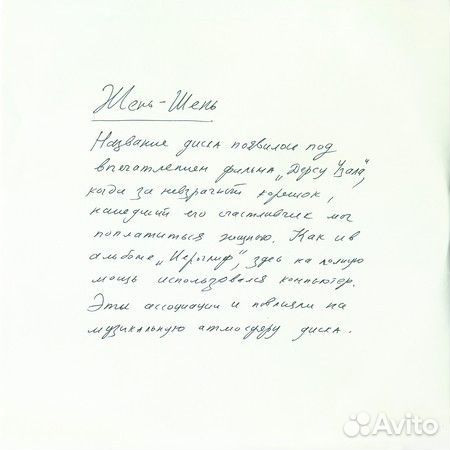 Жень-Шень
Название диска появилось под
впечатлением фильма „Дерсу Узала",
когда за невзрачный корешок,
нашедший его счастливчик мог
поплатиться жизнью. Как и в
альбоме „Иероглиф", здесь на полную
мощь использовался компьютер.
Эти ассоциации и повлияли на
музыкальную атмосферу диска.
Avito